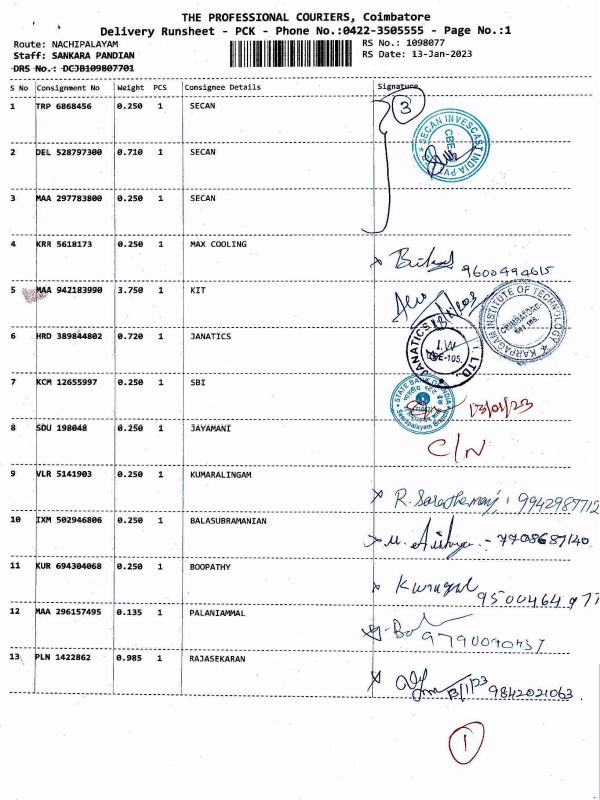 THE PROFESSIONAL COURIERS, Coimbatore
Delivery Runsheet - PCK - Phone No.:0422-3505555 - Page No.:1
Route: NACHIPALAYAM RS No.: 1098077
Staff: SANKARA PANDIAN RS Date: 13-Jan-2023
DRS No.: DCJB109807701
S No Consignment No Weight PCS Consignee Details Signature
1 TRP 6868456 0.250 1 SECAN 3
SECAN INVESCAST INDIA PVT CBE
2 DEL 528797300 0.710 1 SECAN
3 MAA 297783800 0.250 1 SECAN
4 KRR 5618173 0.250 1 MAX COOLING
9600494615
5 MAA 942183990 3.750 1 KIT
KARPAGAM INSTITUTE OF TECHNOLOGY COIMBATORE
6 HRD 389844802 0.720 1 JANATICS
JANATICS I. LTD. I.W CBE-105.
7 KCM 12655997 0.250 1 SBI
STATE BANK OF INDIA 13/01/23
8 SDU 198048 0.250 1 JAYAMANI
C/N
9 VLR 5141903 0.250 1 KUMARALINGAM
R. 9942987712
10 IXM 502946806 0.250 1 BALASUBRAMANIAN
7708687140
11 KUR 694304068 0.250 1 BOOPATHY
12 MAA 296157495 0.135 1 PALANIAMMAL
9790090437
13 PLN 1422862 0.985 1 RAJASEKARAN
13/1/23 9842021063
1